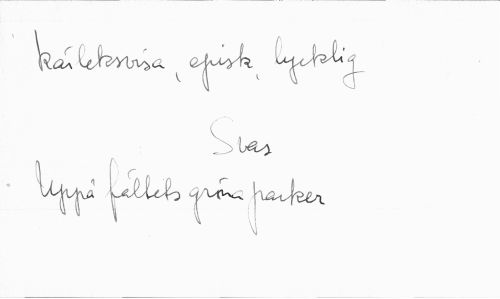 Kärleksvisa, episk, lycklig
Svas
Uppå fältets gröna parker